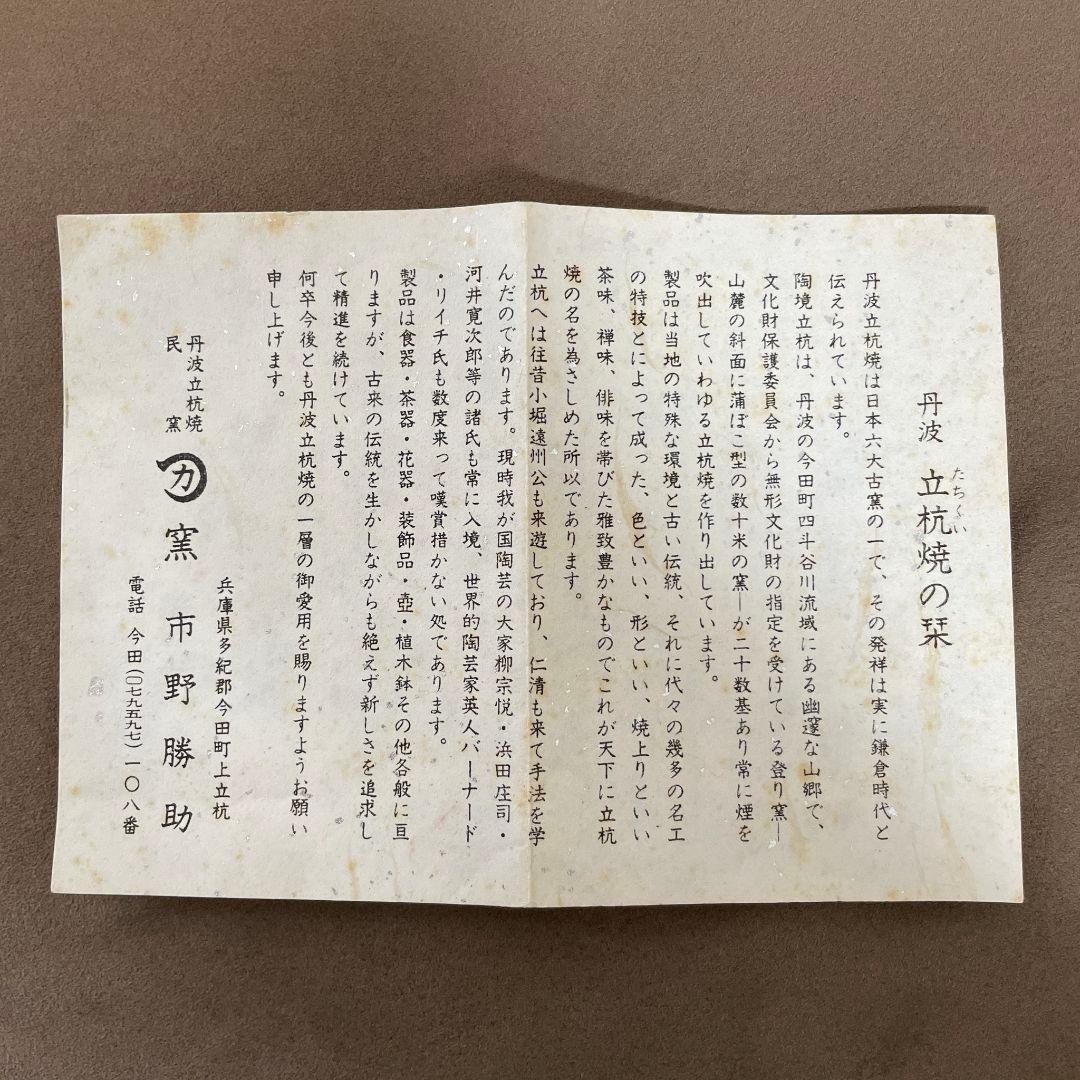 丹波 立杭焼の栞
たちくい
丹波立杭焼は日本六大古窯の一で、その発祥は実に鎌倉時代と
伝えられています。
陶境立杭は、丹波の今田町四斗谷川流域にある幽邃な山郷で、
文化財保護委員会から無形文化財の指定を受けている登り窯—
山麓の斜面に蒲ぼこ型の数十米の窯—が二十数基あり常に煙を
吹出していわゆる立杭焼を作り出しています。
製品は当地の特殊な環境と古い伝統、それに代々の幾多の名工
の特技とによって成った、色といい、形といい、焼上りといい
茶味、禅味、俳味を帯びた雅致豊かなものでこれが天下に立杭
焼の名を為さしめた所以であります。
立杭へは往昔小堀遠州公も来遊しており、仁清も来て手法を学
んだのであります。現時我が国陶芸の大家柳宗悦・浜田庄司・
河井寛次郎等の諸氏も常に入境、世界的陶芸家英人バーナード
・リイチ氏も数度来って嘆賞措かない処であります。
製品は食器・茶器・花器・装飾品・壺・植木鉢その他各般に亘
りますが、古来の伝統を生かしながらも絶えず新しさを追求し
て精進を続けています。
何卒今後とも丹波立杭焼の一層の御愛用を賜りますようお願い
申し上げます。
兵庫県多紀郡今田町上立杭
丹波立杭焼
民窯 カ窯 市野勝助
電話 今田(〇七九五九七)一〇八番